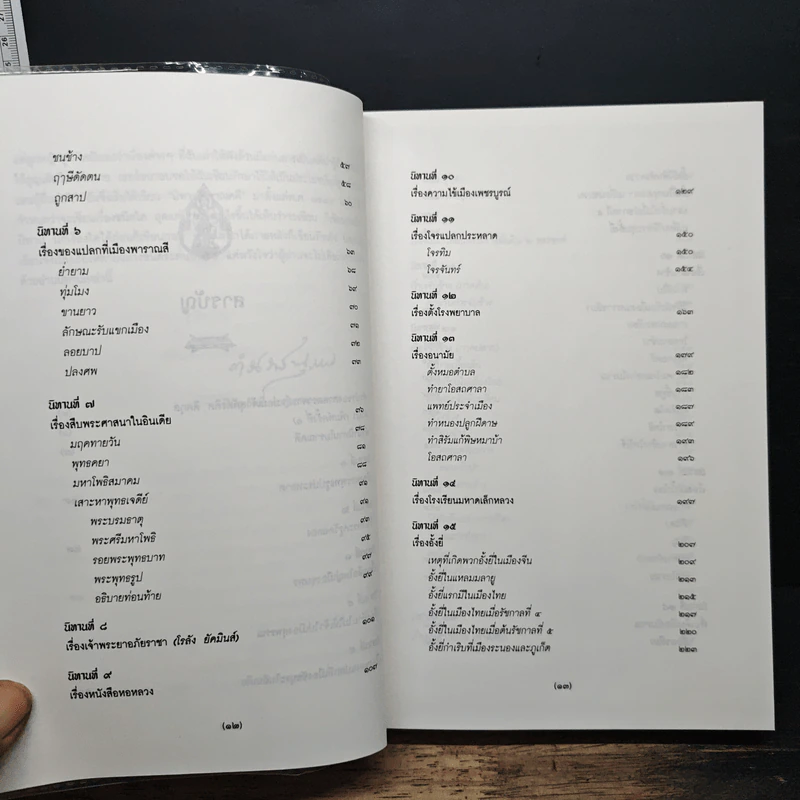 ชนช้าง ๕๗
ฤๅษีดัดตน ๕๘
ถูกสาป ๖๐
นิทานที่ ๖
เรื่องของแปลกที่เมืองพาราณสี ๖๓
ย่ำยาม ๖๘
ทุ่มโมง ๖๙
ขานยาว ๗๐
ลักษณะรับแขกเมือง ๗๑
ลอยบาป ๗๒
ปลงศพ ๗๓
นิทานที่ ๗ ๗๖
เรื่องสืบพระศาสนาในอินเดีย ๗๘
มฤคทายวัน ๘๑
พุทธคยา ๘๘
มหาโพธิสมาคม ๙๑
เสาะหาพุทธเจดีย์ ๙๑
พระบรมธาตุ ๙๓
พระศรีมหาโพธิ ๙๕
รอยพระพุทธบาท ๙๗
พระพุทธรูป ๙๙
อธิบายท่อนท้าย
นิทานที่ ๘ ๑๐๑
เรื่องเจ้าพระยาอภัยราชา (โรลัง ยัคมินส์)
นิทานที่ ๙ ๑๐๗
เรื่องหนังสือหอหลวง
(๑๒)
นิทานที่ ๑๐
เรื่องความไข้เมืองเพชรบูรณ์ ๑๒๙
นิทานที่ ๑๑
เรื่องโจรแปลกประหลาด ๑๕๐
โจรทิม ๑๕๐
โจรจันทร์ ๑๕๔
นิทานที่ ๑๒
เรื่องตั้งโรงพยาบาล ๑๖๓
นิทานที่ ๑๓
เรื่องอนามัย ๑๗๙
ตั้งหมอตำบล ๑๘๒
ทำยาโอสถศาลา ๑๘๓
แพทย์ประจำเมือง ๑๘๗
ทำหนองปลูกฝีดาษ ๑๘๙
ทำสิรัมแก้พิษหมาบ้า ๑๙๓
โอสถศาลา ๑๙๖
นิทานที่ ๑๔
เรื่องโรงเรียนมหาดเล็กหลวง ๑๙๗
นิทานที่ ๑๕
เรื่องอั้งยี่ ๒๐๗
เหตุที่เกิดพวกอั้งยี่ในเมืองจีน ๒๐๙
อั้งยี่ในแหลมมลายู ๒๑๓
อั้งยี่แรกมีในเมืองไทย ๒๑๕
อั้งยี่ในเมืองไทยเมื่อรัชกาลที่ ๔ ๒๑๗
อั้งยี่ในเมืองไทยเมื่อต้นรัชกาลที่ ๕ ๒๒๐
อั้งยี่กำเริบที่เมืองระนองและภูเก็ต ๒๒๓
(๑๓)